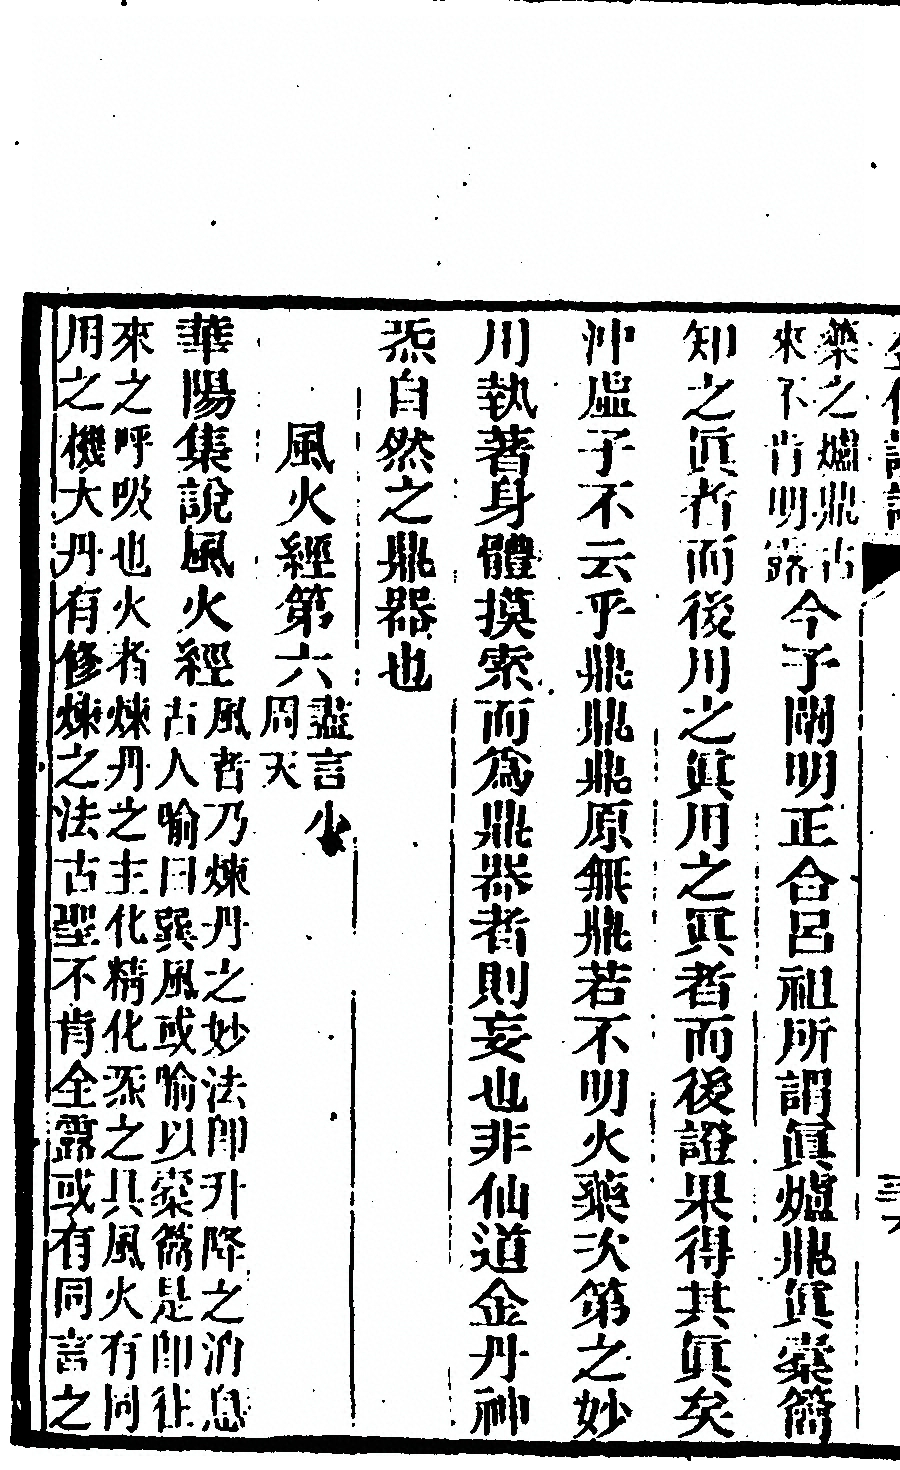 藥之爐鼎古
來不肯明露
今子闡明正合呂祖所謂眞爐鼎眞槖籥
知之眞者而後用之眞用之眞者而後證果得其眞矣
沖虛子不云乎鼎鼎鼎原無鼎若不明火藥次第之妙
用執著身體摸索而爲鼎器者則妄也非仙道金丹神
炁自然之鼎器也
風火經第六
盡言小
周天
華陽集說風火經
風者乃煉丹之妙法卽升降之消息
古人喻曰巽風或喻以槖籥是卽往
來之呼吸也火者煉丹之主化精化炁之具風火有同
用之機大丹有修煉之法古聖不肯全露或有同言之